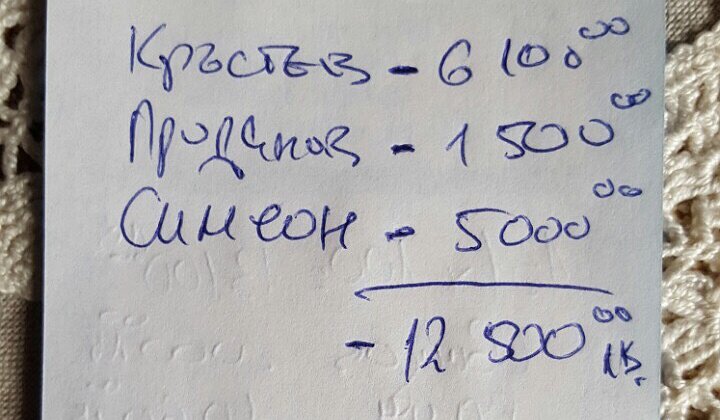 Кръстев - 6 100 00
Проданов - 1 500 00
Симеон - 5000 00
- 12 800 00 лв.